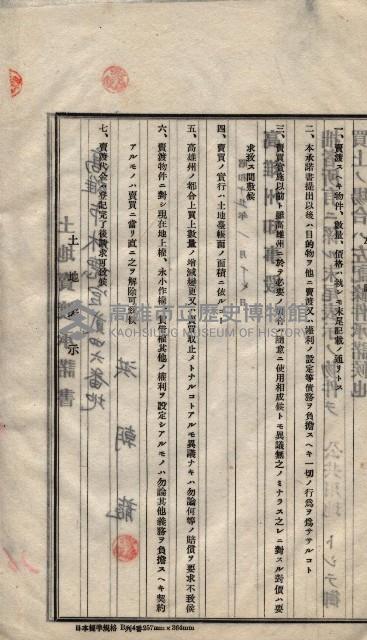 一、賣渡スヘキ物件、數量、價格ハ執レモ末尾記載ノ通リトス
二、本承諾書提出以後ハ目的物ヲ他ニ賣渡又ハ權利ノ設定等債務ヲ負擔スヘキ一切ノ行爲ヲ爲サヽルコト
三、賣買實施以前ト雖高雄州ニ於テ必要ノ場合ハ隨意ニ使用相成候トモ異議無之ノミナラス之レニ對スル對價ハ要
求致ス間敷候
四、賣買ノ實行ハ土地臺帳面ノ面積ニ依ルコト
五、高雄州ノ都合上買上數量ノ增減變更又ハ賣買取止メトナルコトアルモ異議ナキハ勿論何等ノ賠償ヲ要求不致候
六、賣渡物件ニ對シ現在地上權、永小作權、賃借權其他ノ權利ヲ設定シアルモノハ勿論其他義務ヲ負擔スヘキ契約
アルモノハ賣買ニ當リ直ニ之ヲ解除可致候
七、賣渡代金ハ登記完了後請求可致候
土地表示
高雄市立歷史博物館
KAOHSIUNG MUSEUM OF HISTORY
日本標準規格 B列4番257mm×364mm